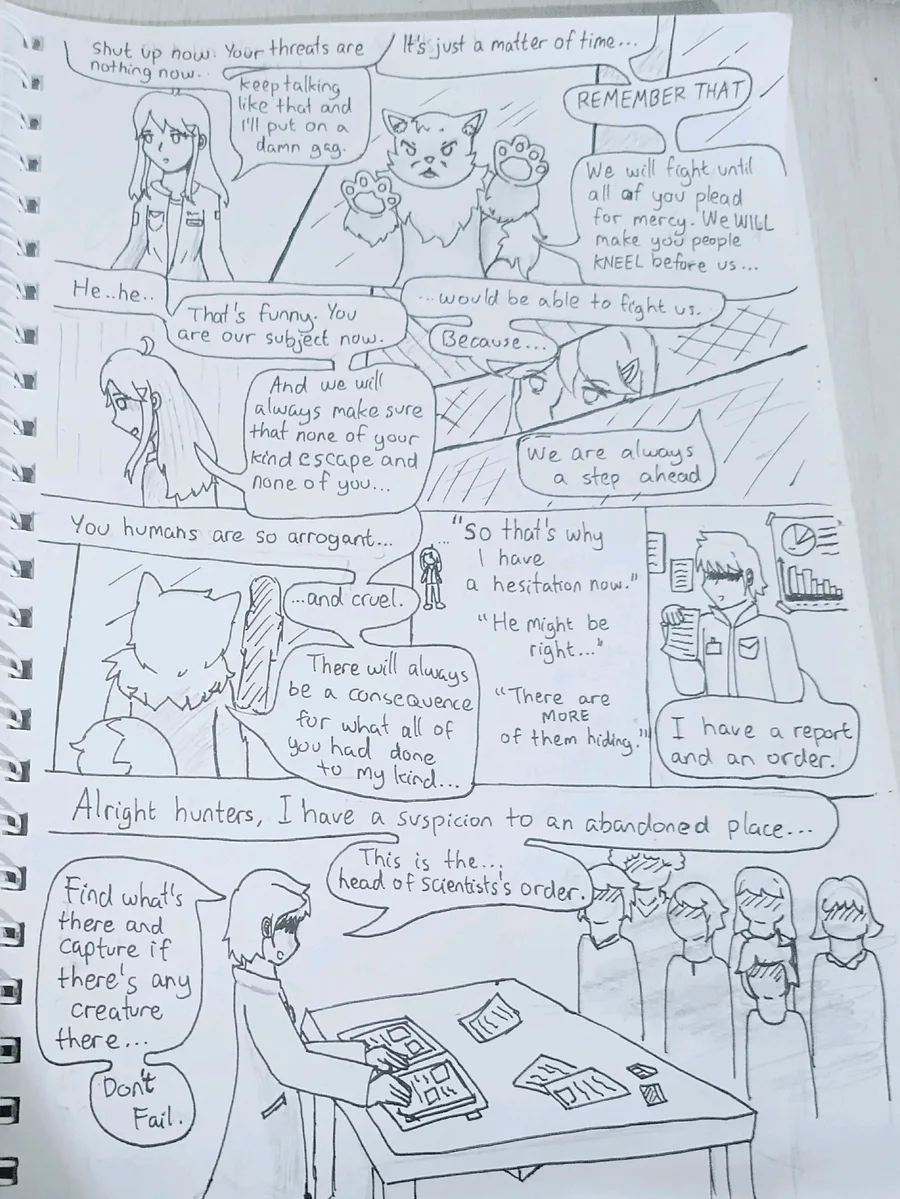 Shut up now. Your threats are
nothing now..
keep talking
like that and
I'll put on a
damn gag.
It's just a matter of time...
REMEMBER THAT
We will fight until
all of you plead
for mercy. We WILL
make you people
KNEEL before us...
He..he..
That's funny. You
are our subject now.
And we will
always make sure
that none of your
kind escape and
none of you...
...would be able to fight us.
Because...
We are always
a step ahead
You humans are so arrogant...
...and cruel.
There will always
be a consequence
for what all of
you had done
to my kind...
...
"So that's why
I have
a hesitation now."
"He might be
right..."
"There are
MORE
of them hiding."
I have a report
and an order.
Alright hunters, I have a suspicion to an abandoned place...
This is the...
head of scientists's order.
Find what's
there and
capture if
there's any
creature
there...
Don't
Fail.